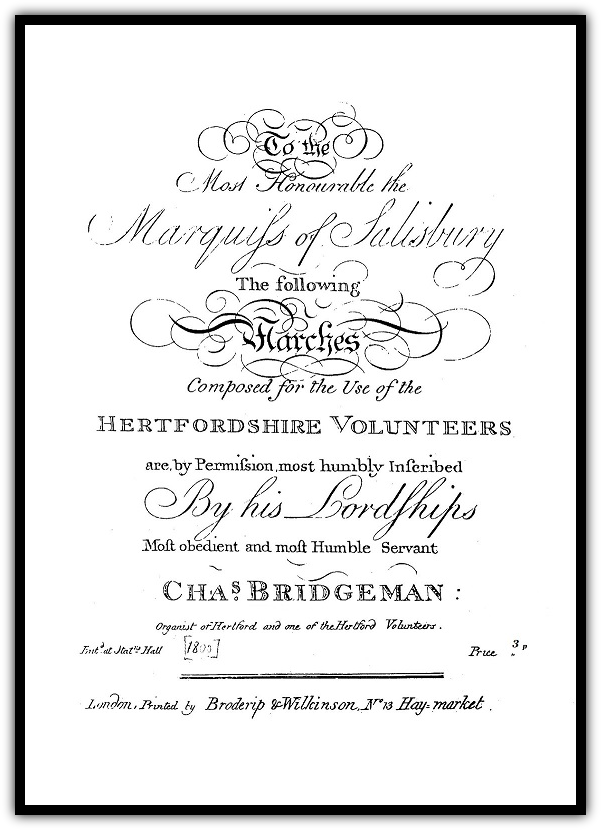 To the
Most Honourable the
Marquiſs of Salisbury
The following
Marches
Composed for the Use of the
HERTFORDSHIRE VOLUNTEERS
are, by Permiſsion, most humbly Inſcribed
By his Lordſhips
Moſt obedient and moſt Humble Servant
CHAS. BRIDGEMAN :
Organist of Hertford and one of the Hertford Volunteers.
Ent.d at Stat.rs Hall [1800] Price 3 p
London, Printed by Broderip & Wilkinson, No. 13 Hay=market.